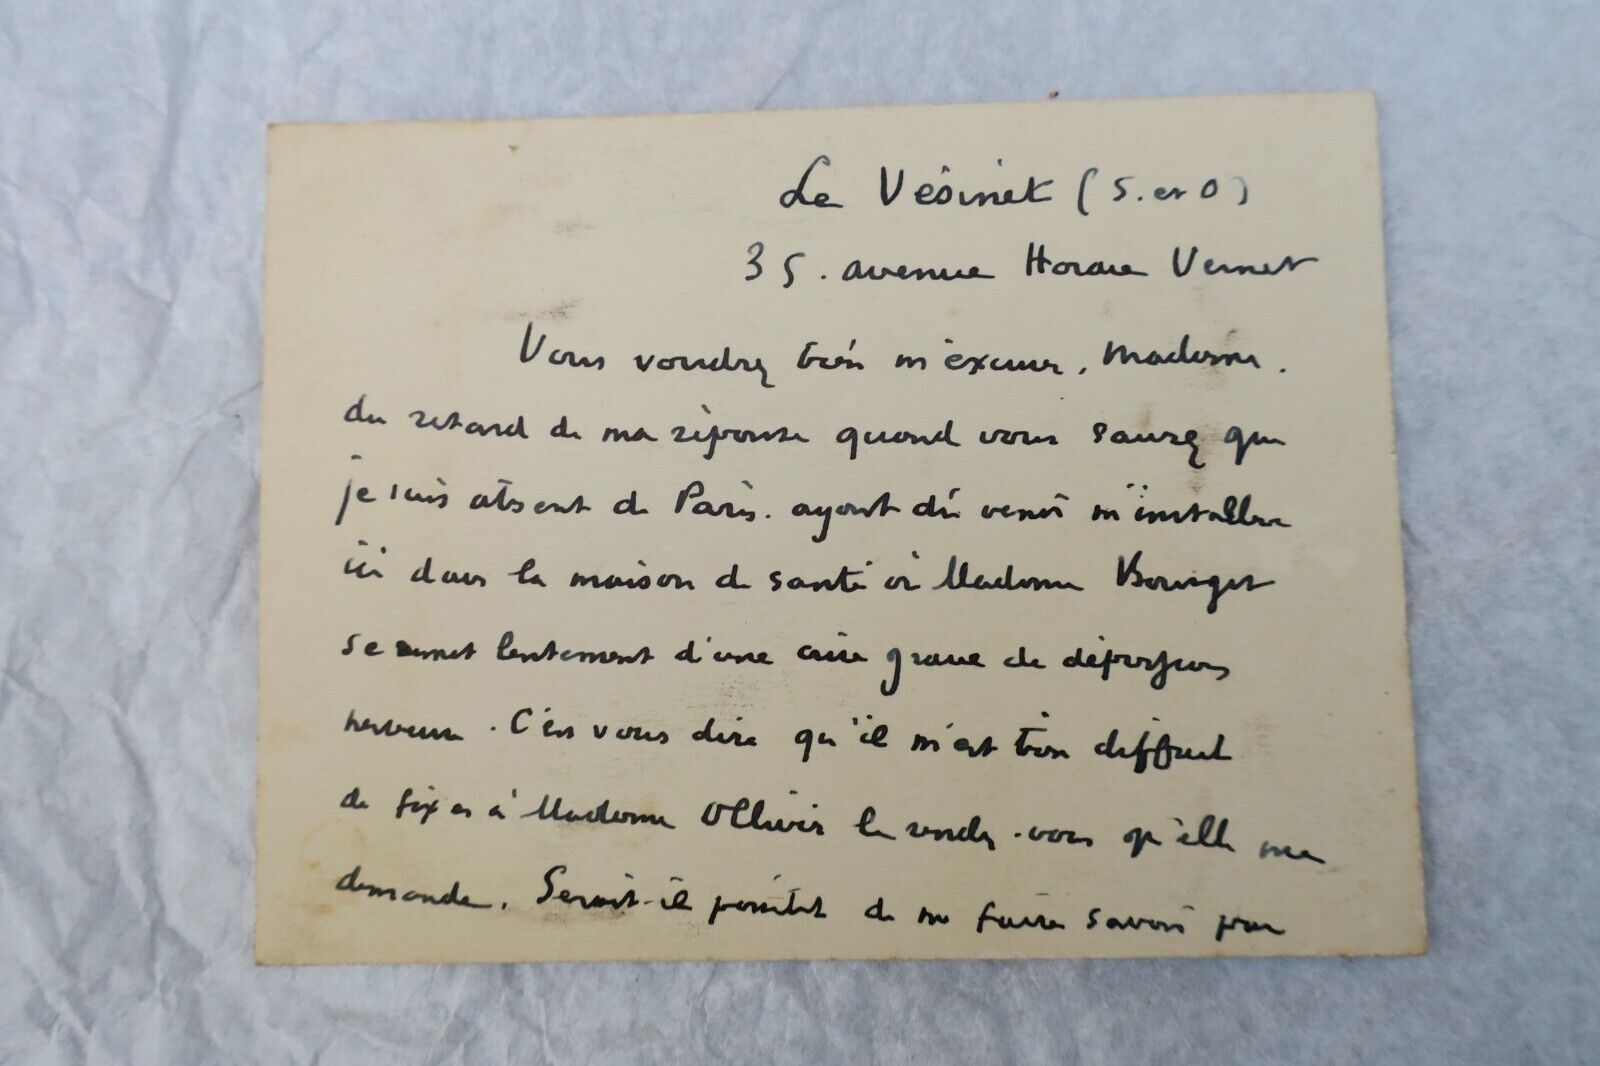 Le Vésinet (S. et O)
35. avenue Horace Vernet
Vous voudrez bien m'excuser, Madame.
du retard de ma réponse quand vous saurez que
je suis absent de Paris. ayant dû venir m'installer
ici dans la maison de santé où Madame Bourget
se remet lentement d'une crise grave de dépression
nerveuse. C'est vous dire qu'il m'est bien difficile
de fixer à Madame Ollivier le rendez-vous qu'elle me
demande. Serait-il possible de me faire savoir par